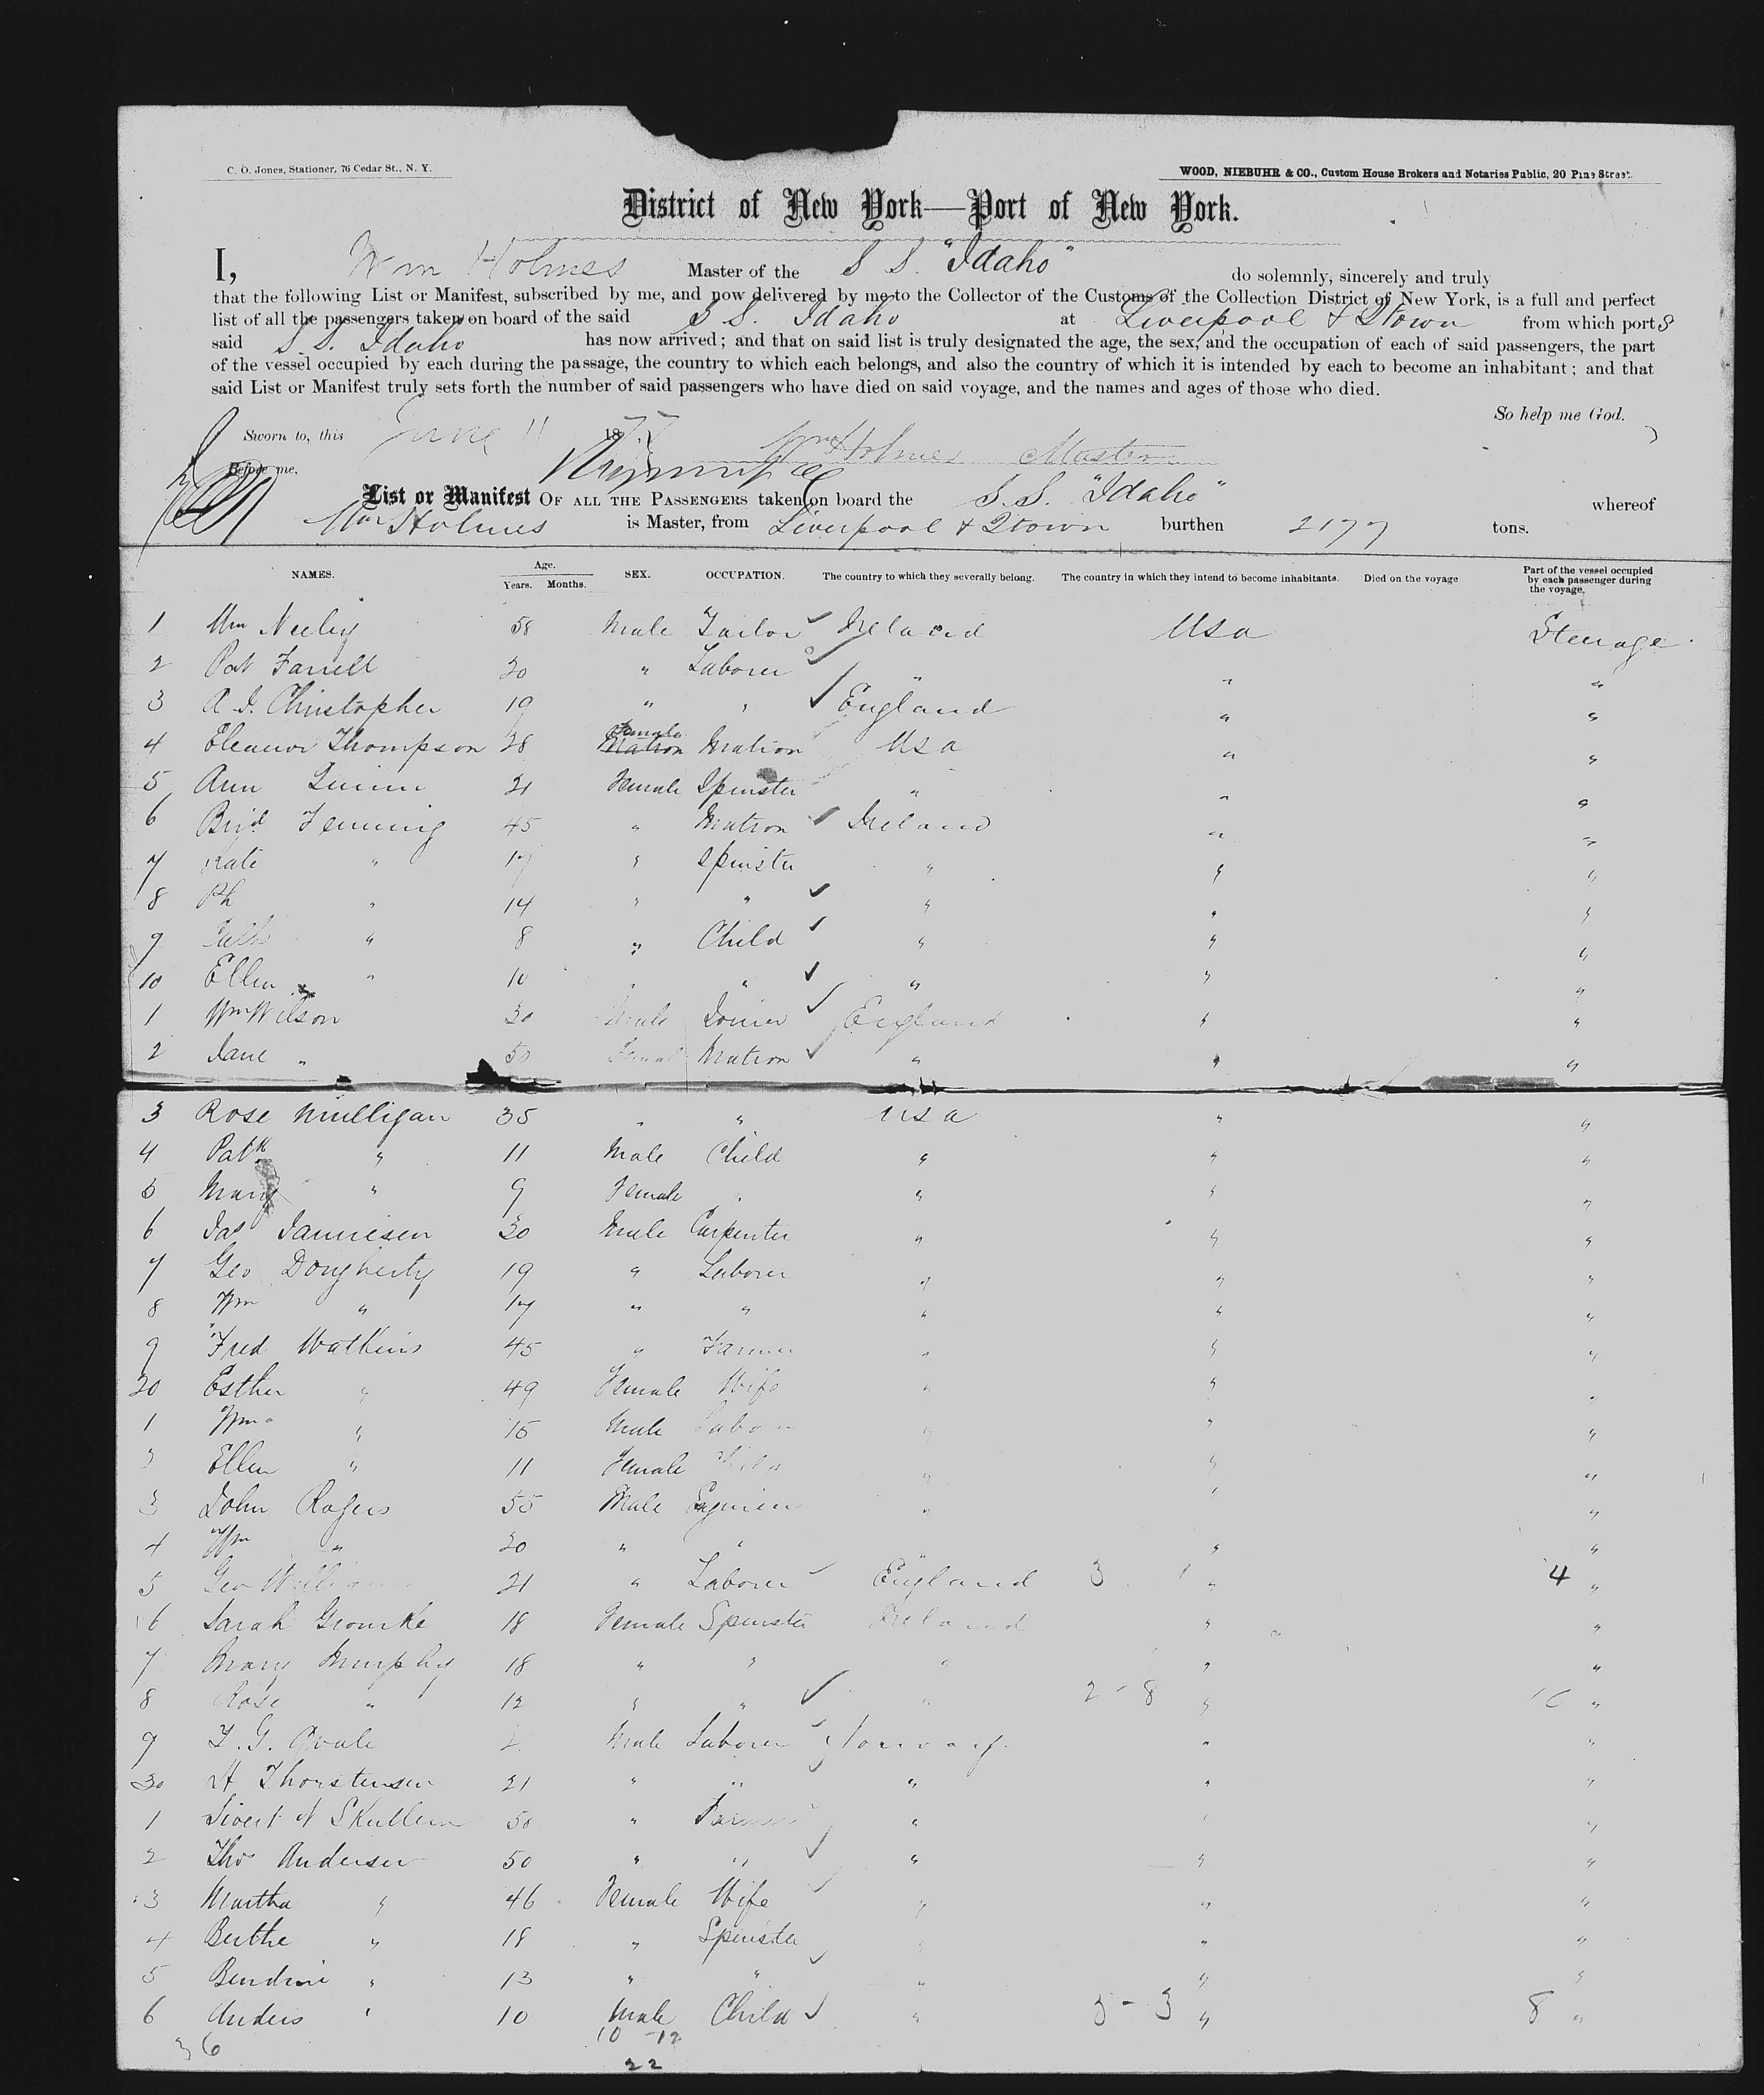 C. O. Jones, Stationer, 76 Cedar St., N. Y.
WOOD, NIEBUHR & CO., Custom House Brokers and Notaries Public, 20 Pine Street.
District of New York—Port of New York.
I, Wm Holmes Master of the S S "Idaho" do solemnly, sincerely and truly
that the following List or Manifest, subscribed by me, and now delivered by me to the Collector of the Customs of the Collection District of New York, is a full and perfect
list of all the passengers taken on board of the said S S. Idaho at Liverpool & Qtown from which port s
said S. S. Idaho has now arrived; and that on said list is truly designated the age, the sex, and the occupation of each of said passengers, the part
of the vessel occupied by each during the passage, the country to which each belongs, and also the country of which it is intended by each to become an inhabitant; and that
said List or Manifest truly sets forth the number of said passengers who have died on said voyage, and the names and ages of those who died.
So help me God.
Sworn to, this June 11 1877
Wm Holmes Master
Before me,
List or Manifest OF ALL THE PASSENGERS taken on board the S. S. "Idaho" whereof
Wm Holmes is Master, from Liverpool & Qtown burthen 2177 tons.
NAMES. Age. Years. Months. SEX. OCCUPATION. The country to which they severally belong. The country in which they intend to become inhabitants. Died on the voyage Part of the vessel occupied by each passenger during the voyage.
1 Wm Neeley 58 Male Tailor Ireland USa Steerage
2 Pat Farrell 20 " Laborer " " "
3 A. I. Christopher 19 " " England " "
4 Eleanor Thompson 28 Female Matron Matron USa " "
5 Ann Quinn 21 Female Spinster " " "
6 Brid Fenning 45 " Matron Ireland " "
7 Kate " 17 " Spinster " " "
8 " 14 " " " " "
9 " 8 " Child " " "
10 Ellen " 10 " " " " "
1 Wm Wilson 30 Male Joiner England " "
2 Jane " 50 Female Matron " " "
3 Rose Mulligan 35 " " USa " "
4 Patk " 11 Male Child " " "
5 Mary " 9 Female " " " "
6 Jas Jamiesen 30 Male Carpenter " " "
7 Geo Dougherty 19 " Laborer " " "
8 Wm " 17 " " " " "
9 Fred Watkins 45 " Farmer " " "
20 Esther " 49 Female Wife " " "
1 Wm " 15 Male Labor " " "
2 Ellen " 11 Female Child " " "
3 John Rogers 55 Male Engineer " " "
4 Wm " 20 " " " " "
5 Geo William 21 " Laborer England 3 1 " 4 "
6 Sarah Grourke 18 Female Spinster Ireland " "
7 Mary Murphy 18 " " " " "
8 Rose " 12 " " " 2 - 8 " 10 "
9 Male Laborer Norway " "
30 A Thorstensen 21 " " " " "
1 Sivert N Skullem 50 " Farmer " " "
2 Tho Andersen 50 " " " " "
3 Martha " 46 Female Wife " " "
4 Berthe " 18 " Spinster " " "
5 Bendrine " 13 " " " " "
6 Anders " 10 Male Child " 5 - 3 " 8 "
36 10 - 12
22